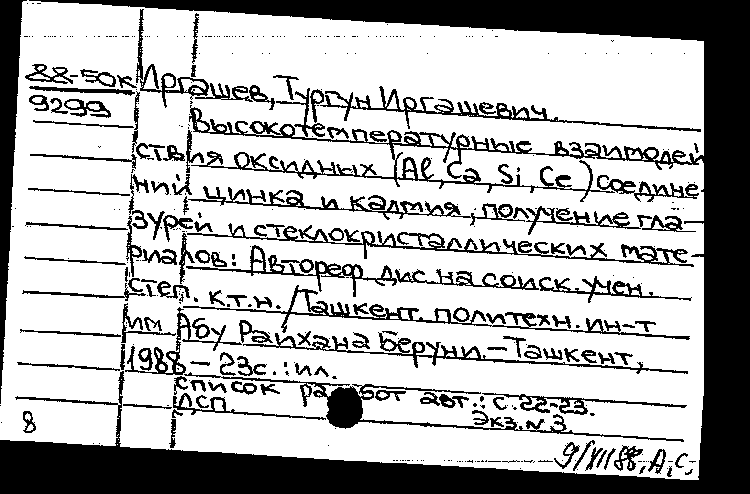 88-50к Иргашев, Тургун Иргашевич.
9299
Высокотемпературные взаимодей
ствия оксидных (Al, Ca, Si, Ce) соедине-
ний цинка и кадмия, получение гла-
зурей и стеклокристаллических мате-
риалов: Автореф дис. на соиск. учен.
степ. к.т.н. / Ташкент. политехн. ин-т
им Абу Райхана Беруни. – Ташкент,
1988 – 23с.: ил.
список работ авт.: с. 22-23.
ДСП. Экз. N 3.
8
9/XII 88, А,С,